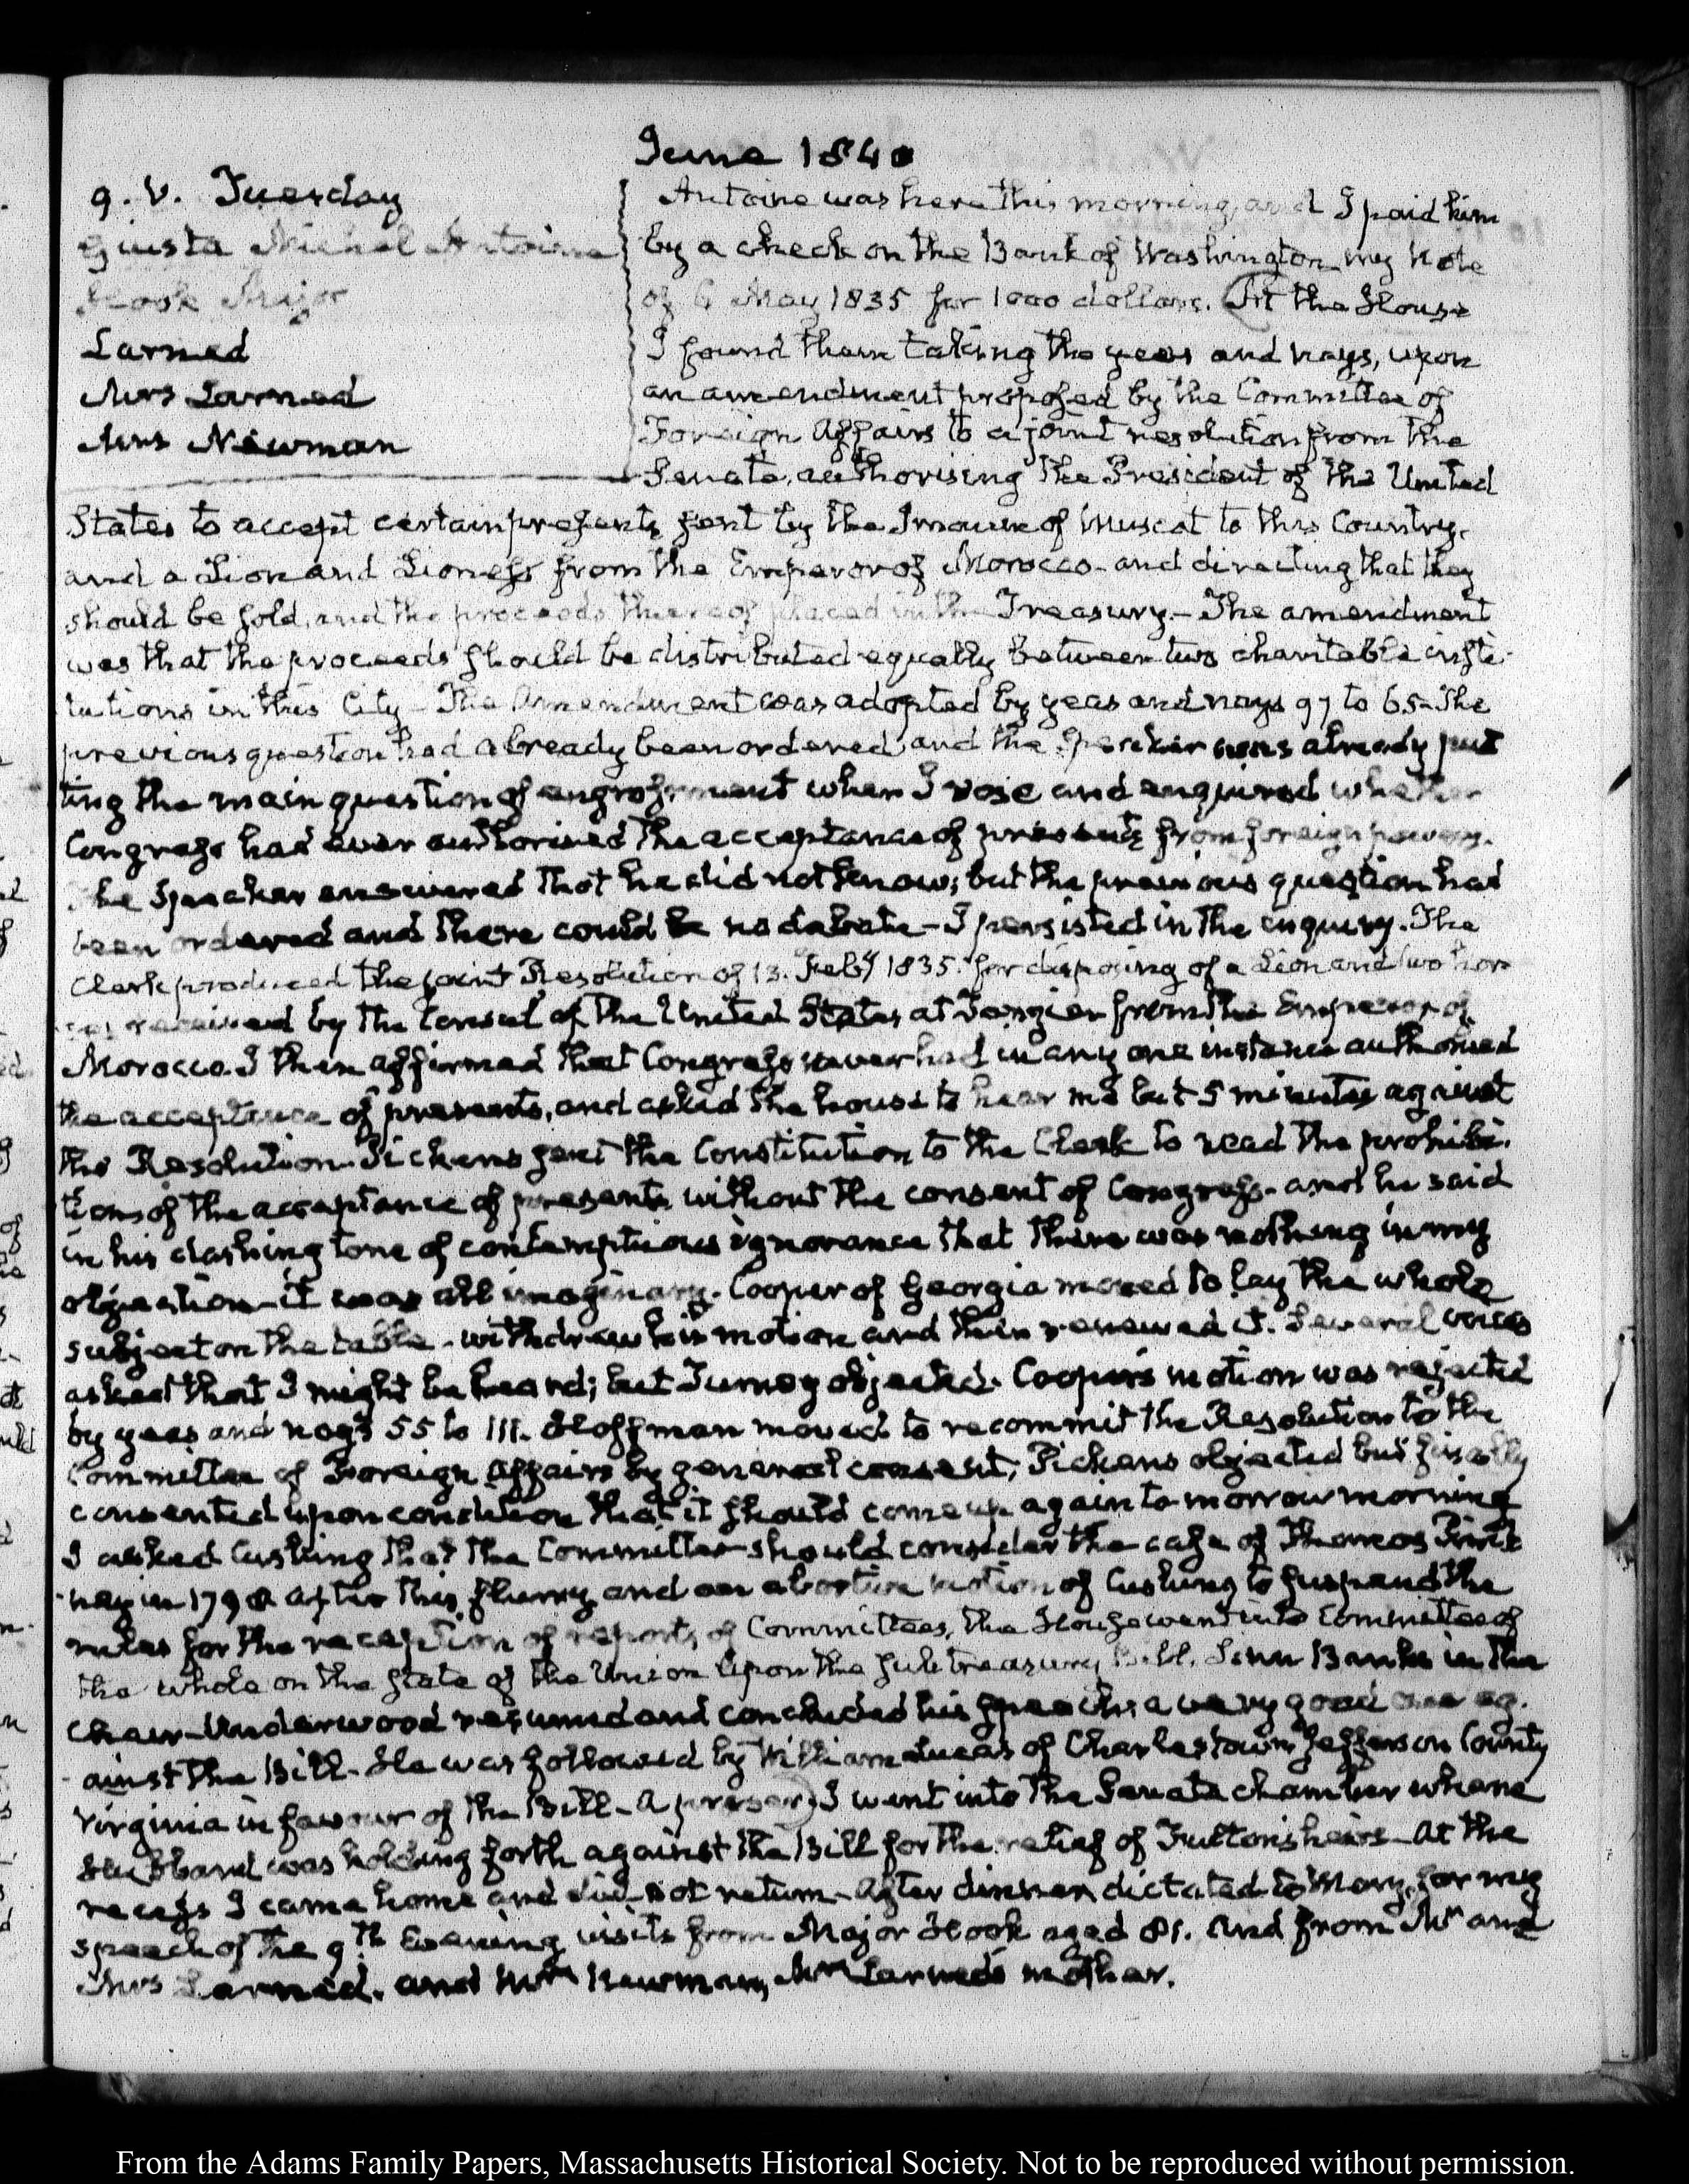 June 1840
9. V. Tuesday
Giusta Michel Antoine
Hook Major
Larned
Mrs Larned
Mrs Newman
Antoine was here this morning, and I paid him
by a check on the Bank of Washington my Note
of 6 May 1835 for 1000 dollars. At the House
I found them taking the yeas and nays, upon
an amendment proposed by the Committee of
Foreign Affairs to a joint resolution from the
Senate, authorising the President of the United
States to accept certain presents sent by the Imaum of Muscat to this Country,
and a Lion and Lioness from the Emperor of Morocco - and directing that they
should be sold, and the proceeds thereof placed in the Treasury. - The amendment
was that the proceeds should be distributed equally between two charitable insti-
tutions in this City - The Amendment was adopted by yeas and nays 97 to 65 - The
previous question had already been ordered and the Speaker was already put
ting the main question of engrossment when I rose and enquired whether
Congress had ever authorised the acceptance of presents from foreign powers.
The Speaker answered that he did not know; but the previous question had
been ordered and there could be no debate - I persisted in the enquiry. The
Clerk produced the joint Resolution of 13. Feby 1835. for disposing of a Lion and two hor
ses received by the Consul of the United States at Tangier from the Emperor of
Morocco. I then affirmed that Congress never had in any one instance authorised
the acceptance of presents, and asked the house to hear me but 5 minutes against
the Resolution. Pickens sent the Constitution to the Clerk to read the prohibi-
tions of the acceptance of presents without the consent of Congress - and he said
in his dashing tone of contemptuous ignorance that there was nothing in my
objection - it was all imaginary. Cooper of Georgia moved to lay the whole
subject on the table - withdrew his motion and then renewed it. Several voices
asked that I might be heard; but Turney objected. Cooper's motion was rejected
by yeas and nays 55 to 111. Hoffman moved to recommit the Resolution to the
Committee of Foreign Affairs by general consent, Pickens objected but finally
consented upon condition that it should come up again to-morrow morning
I asked Cushing that the Committee should consider the case of Thomas Pinck
ney in 1798 after this flurry and an abortive motion of Cushing to suspend the
rules for the reception of reports of Committees, the House went into Committee of
the whole on the State of the Union upon the Subtreasury Bill. Linn Banks in the
Chair - Underwood resumed and concluded his speech, a very good one ag-
ainst the Bill - He was followed by William Lucas of Charlestown Jefferson County
Virginia in favour of the Bill - I went into the Senate chamber where
Hubbard was holding forth against the Bill for the relief of Fulton's heirs - At the
recess I came home and did not return - After dinner dictated to Mary, for my
speech of the 9th Evening visits from Major Hook aged 81. and from Mr and
Mrs Larned. and Mrs Newman, Mrs Larned's mother.
From the Adams Family Papers, Massachusetts Historical Society. Not to be reproduced without permission.